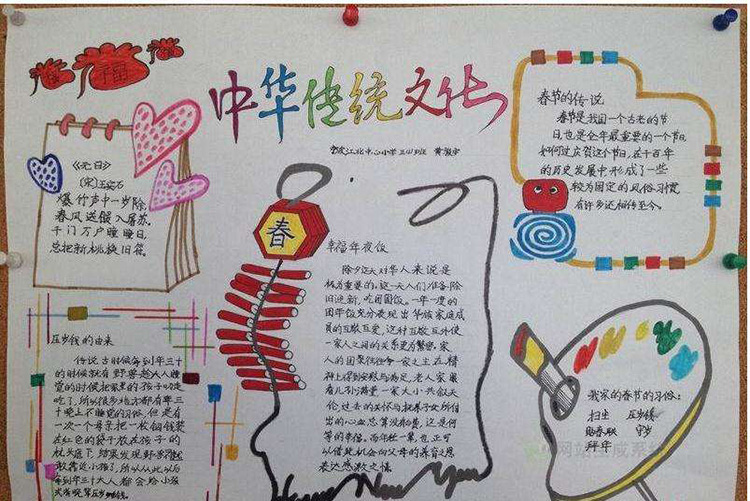 中华传统文化
《元日》
(宋)王安石
爆竹声中一岁除
春风送暖入屠苏.
千门万户曈曈日.
总把新桃换旧符.
春节的传说
春节是我国一个古老的节
日,也是全年最重要的一个节日,
如何过庆贺这个节日,在千百年
的历史发展中形成了一些
较为固定的风俗习惯
有许多还相传至今。
春
幸福年夜饭
除夕这天对华人来说是
极为重要的,这一天人们准备除
旧迎新,吃团圆饭。一年一度的
团年饭充分表现出华族家庭成
员的互敬互爱,这种互敬互外使
一家人之间的关系更为紧密.家
人的团聚往往令一家之主在精
神上得到安慰与满足,老人家
有儿孙满堂一家大小共叙天
伦,过去的关怀与抚养子女所付
出的心血总算没有白费,这是何
等的幸福。而年轻一辈,也正可
以借此机会向父母的养育之恩
表达感激之情
New You
压岁钱的由来
传说古时候每到年三十
的时候就有野兽趁大人睡
觉的时候把家里的孩子叼走
吃了,所以很多地方都有年三
十晚上不睡觉的习俗,但是有
一次一个母亲把一枚铜钱装
在红色的袋子放在孩子的
枕头底下,结果发现野兽
敢靠近小孩了,所以从此以后
每到年三十大人都会给小孩
我家的春节的习俗:
扫尘 压岁钱
贴春联 守岁
拜年
网站生成系统